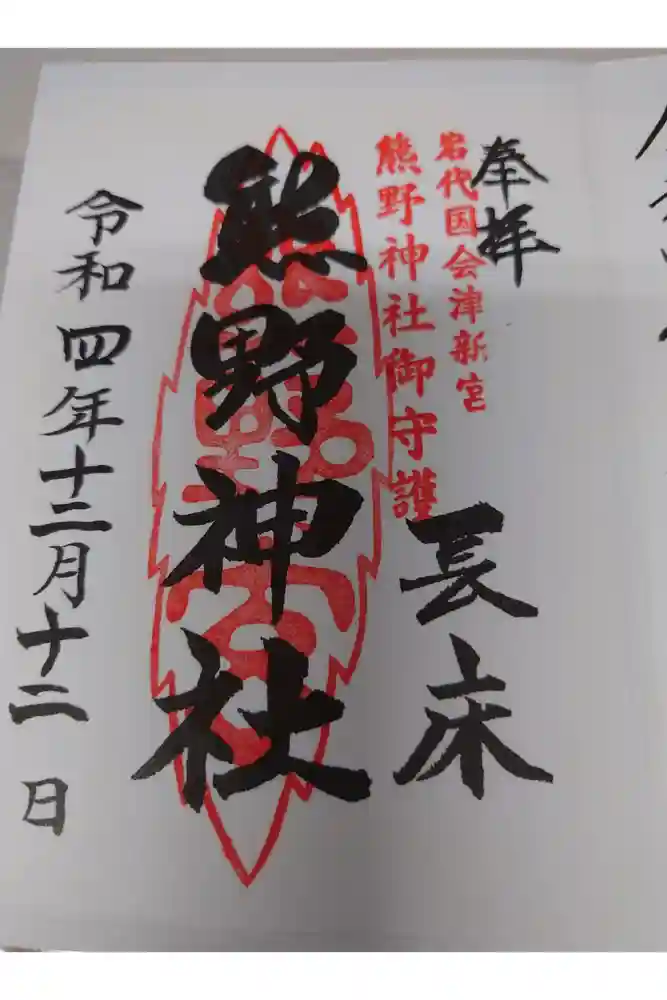 奉拝
岩代国会津新宮
熊野神社御守護
長床
熊野神社
令和四年十二月十二日